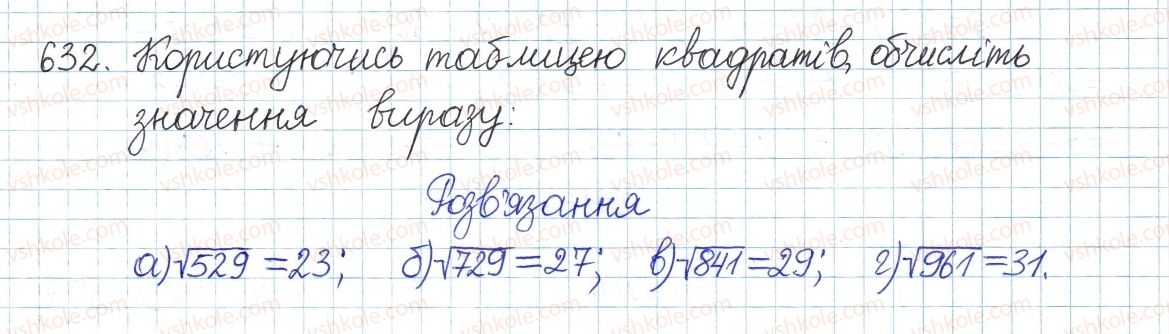 632. Користуючись таблицею квадратів, обчисліть
значення виразу:
Розв'язання
а) √529 = 23; б) √729 = 27; в) √841 = 29; г) √961 = 31.